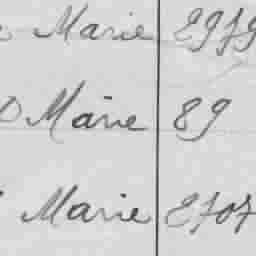 Marie 2979
Marie 89
Marie 2707